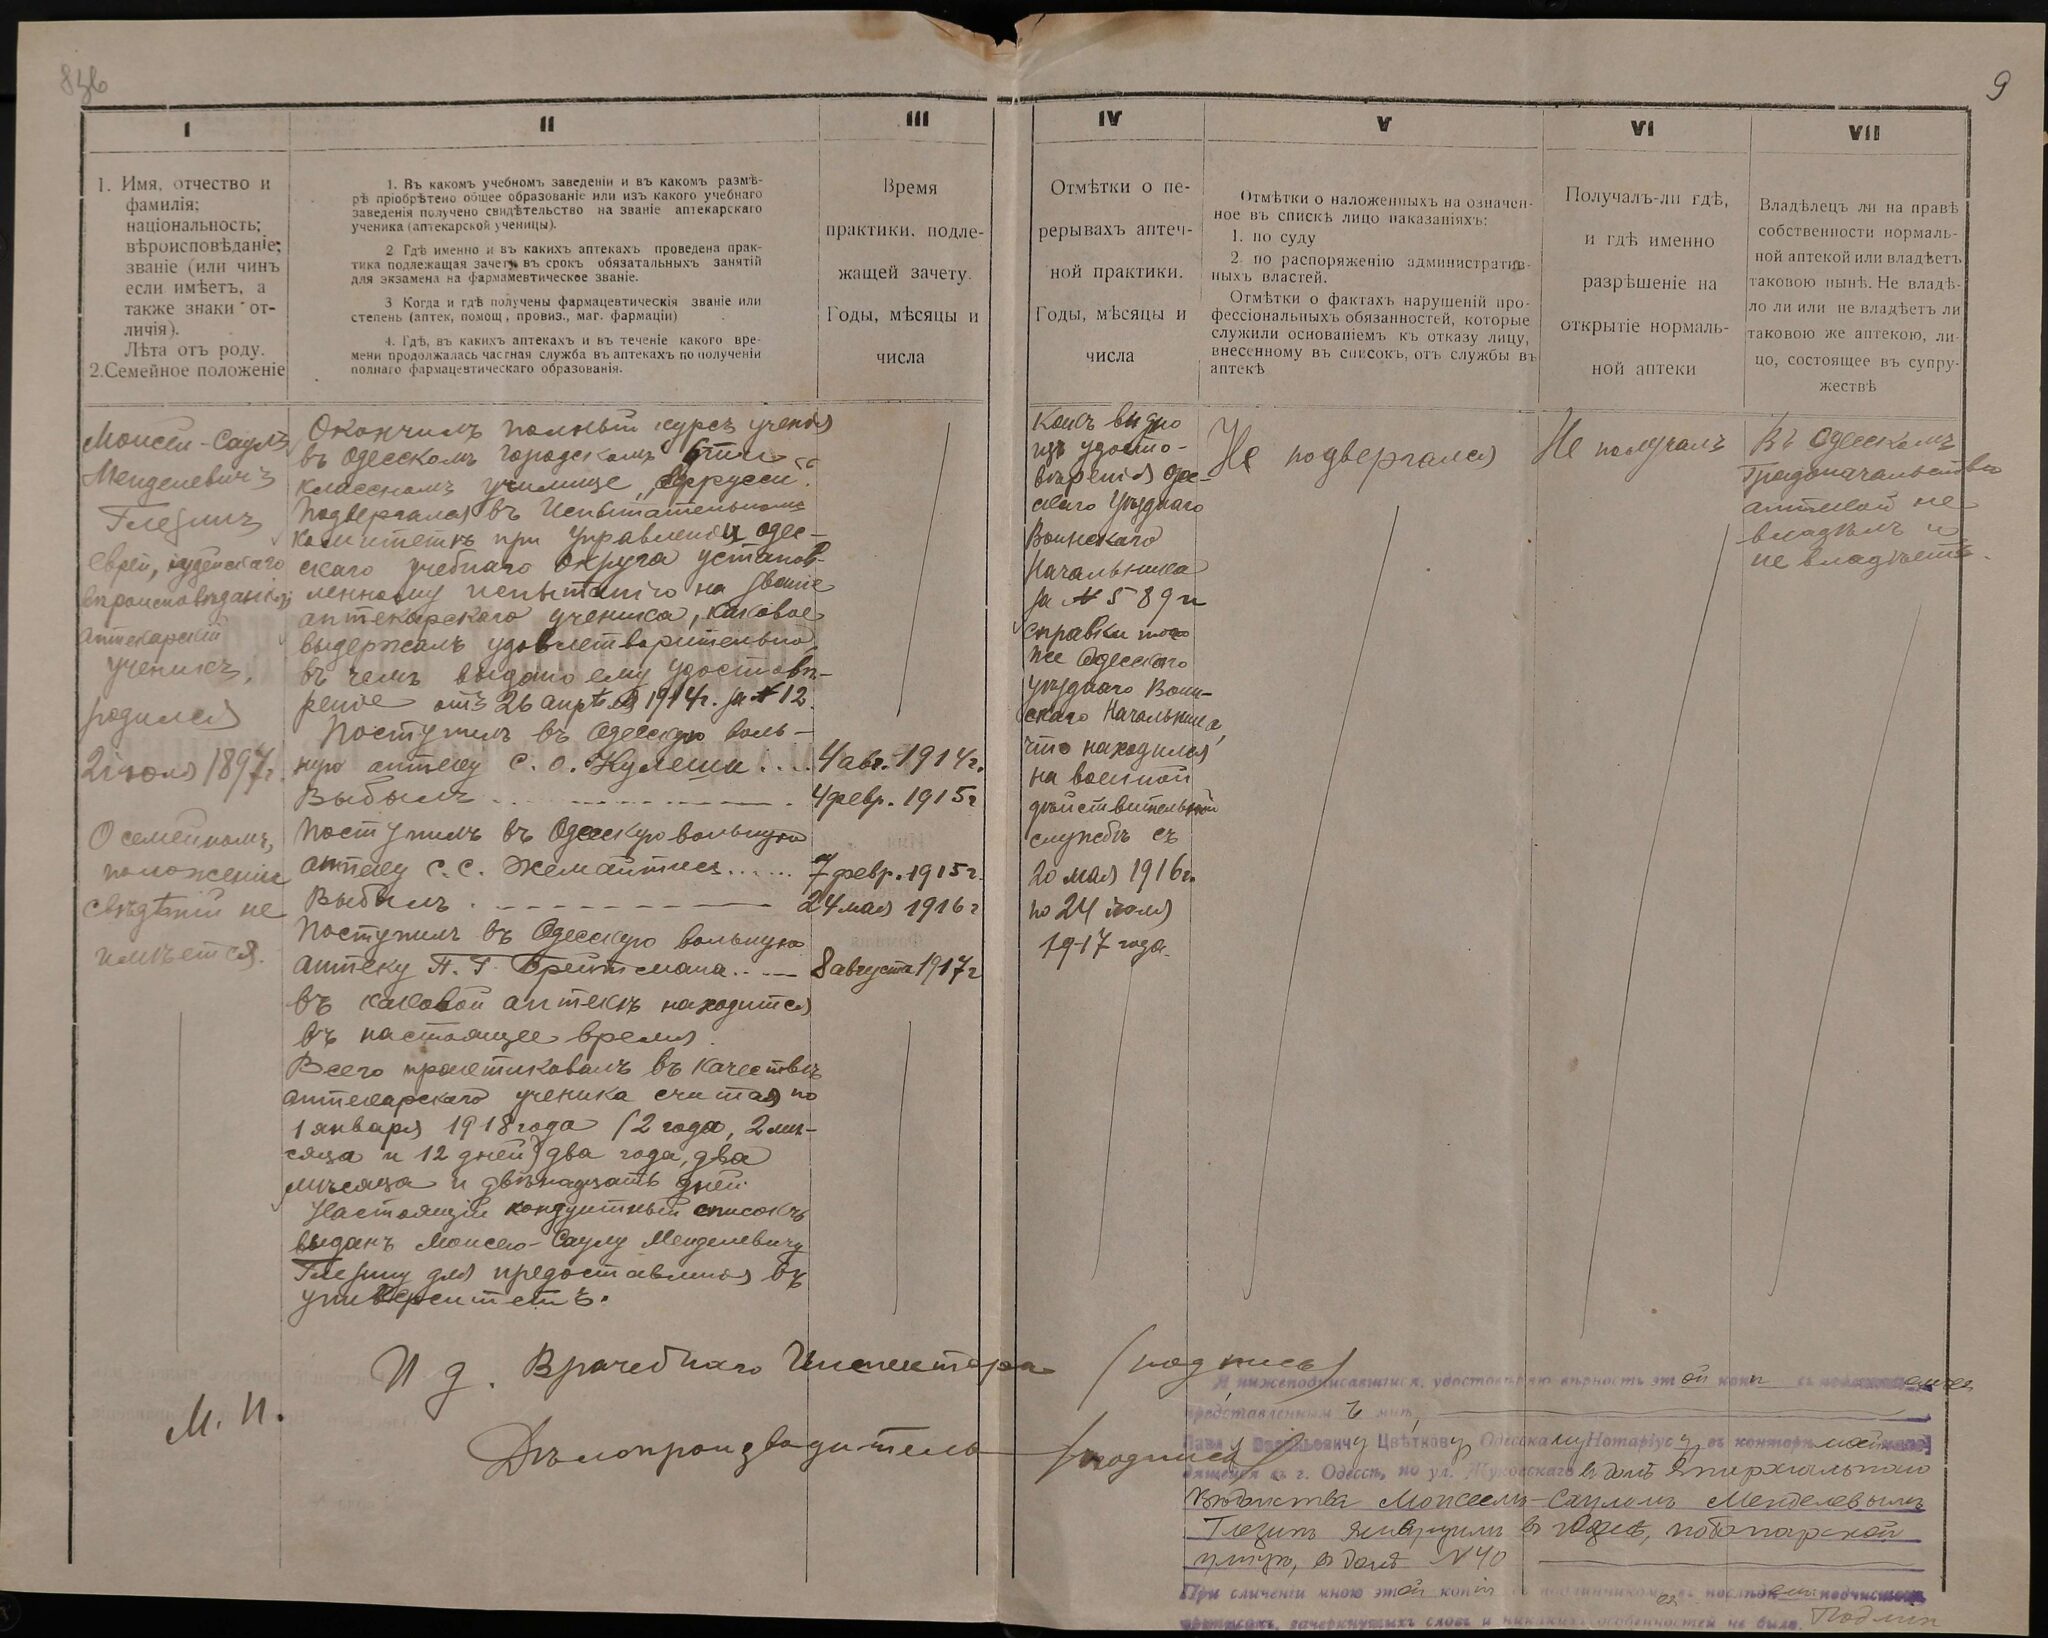 9
I
II
III
IV
V
VI
VII
1. Имя, отчество и
фамилія;
національность;
вѣроисповѣданіе;
званіе (или чинъ
если имѣетъ, а
также знаки от-
личія).
Лѣта отъ роду.
2. Семейное положеніе
1. Въ какомъ учебномъ заведеніи и въ какомъ размѣ-
рѣ пріобрѣтено общее образованіе или изъ какого учебнаго
заведенія получено свидѣтельство на званіе аптекарскаго
ученика (аптекарской ученицы).
2. Гдѣ именно и въ какихъ аптекахъ проведена прак-
тика подлежащая зачету въ срокъ обязатальныхъ занятій
для экзамена на фармаментическое званіе.
3 Когда и гдѣ получены фармацевтическія званіе или
степень (аптек, помощ, провиз., маг. фармаціи)
4. Гдѣ, въ какихъ аптекахъ и въ теченіе какого вре-
мени продолжалась частная служба въ аптекахъ по полученіи
полнаго фармацевтическаго образованія.
Время
практики, подле-
жащей зачету.
Годы, мѣсяцы и
числа
Отмѣтки о пе-
рерывахъ аптеч-
ной практики.
Годы, мѣсяцы и
числа
Отмѣтки о наложенныхъ на означен-
ное въ спискѣ лицо наказаніяхъ:
1. по суду
2. по распоряженію административ-
ныхъ властей.
Отмѣтки о фактахъ нарушеній про-
фессіональныхъ обязанностей, которые
служили основаніемъ къ отказу лицу,
внесенному въ списокъ, отъ службы въ
аптекѣ
Получалъ-ли гдѣ,
и гдѣ именно
разрѣшеніе на
открытіе нормаль-
ной аптеки
Владѣлецъ ли на правѣ
собственности нормаль-
ной аптекой или владѣетъ
таковою нынѣ. Не владѣ-
ло ли или не владѣетъ ли
таковою же аптекою, ли-
цо, состоящее въ супру-
жествѣ
Моисей-Саулъ
Менделевичъ
Глезинъ
Еврей, іудейскаго
вѣроисповѣданія,
аптекарскій
ученикъ,
родился
2 іюля 1897 г.
О семейномъ
положеніи
свѣдѣній не
имѣется.
Окончилъ полный курсъ ученія
въ Одесскомъ городскомъ 6ти
классномъ училище „Эфрусси“.
Подвергался въ Испытательномъ
комитетѣ при Управленіи Одес-
скаго учебнаго округа установ-
ленному испытанію на званіе
аптекарскаго ученика, каковое
выдержалъ удовлетворительно,
въ чемъ выдано ему удостовѣ-
реніе отъ 26 апрѣля 1914 г. за № 12.
Поступилъ въ Одесскую воль-
ную аптеку С. О. Кулеши .... 4 авг. 1914 г.
Выбылъ ........ 4 февр. 1915 г
Поступилъ въ Одесскую вольную
аптеку С. С. Жемайтиса ...... 7 февр. 1915 г.
Выбылъ . ———— 24 мая 1916 г
Поступилъ въ Одесскую вольную
аптеку П. Г. Брейтмана .... 8 августа 1917 г
въ каковой аптекѣ находится
въ настоящее время.
Всего практиковалъ въ качествѣ
аптекарскаго ученика считая по
1 января 1918 года (2 года, 2 мѣ-
сяца и 12 дней) два года, два
мѣсяца и двѣнадцать дней.
Настоящій кондуитный списокъ
выданъ Моисею-Саулу Менделевичу
Глезину для предоставленія въ
университетъ.
Какъ видно
изъ удосто-
вѣренія Одес-
скаго Уѣзднаго
Воинскаго
Начальника
за № 589 и
справки того
же Одесскаго
Уѣзднаго Воин-
скаго Начальника,
что находился
на военной
дѣйствительной
службѣ съ
20 мая 1916 г.
по 24 іюля
1917 года.
Не подвергался
Не получалъ
Въ Одесскомъ
Градоначальствѣ
аптекой не
владѣлъ и
не владѣетъ.
И д. Врачебнаго Инспектора (подпись)
М. П.
Дѣлопроизводитель (подпись)
Я нижеподписавшійся, удостовѣряю вѣрность этой копіи съ подлинникомъ
представленнымъ мнѣ,
Павлу Васильевичу Цвѣткову, Одесскому Нотаріусу, въ конторѣ моей нахо-
дящейся въ г. Одессѣ, по ул. Жуковскаго въ домѣ Епархіальнаго
Вѣдомства Моисеемъ-Сауломъ Менделевымъ
Глезинъ живущимъ въ Одессѣ, по Болгарской
улицѣ, въ домѣ N 40
При сличеніи мною этой копіи съ подлинникомъ въ послѣднемъ подчистокъ
приписокъ, зачеркнутыхъ словъ и никакихъ особенностей не было.